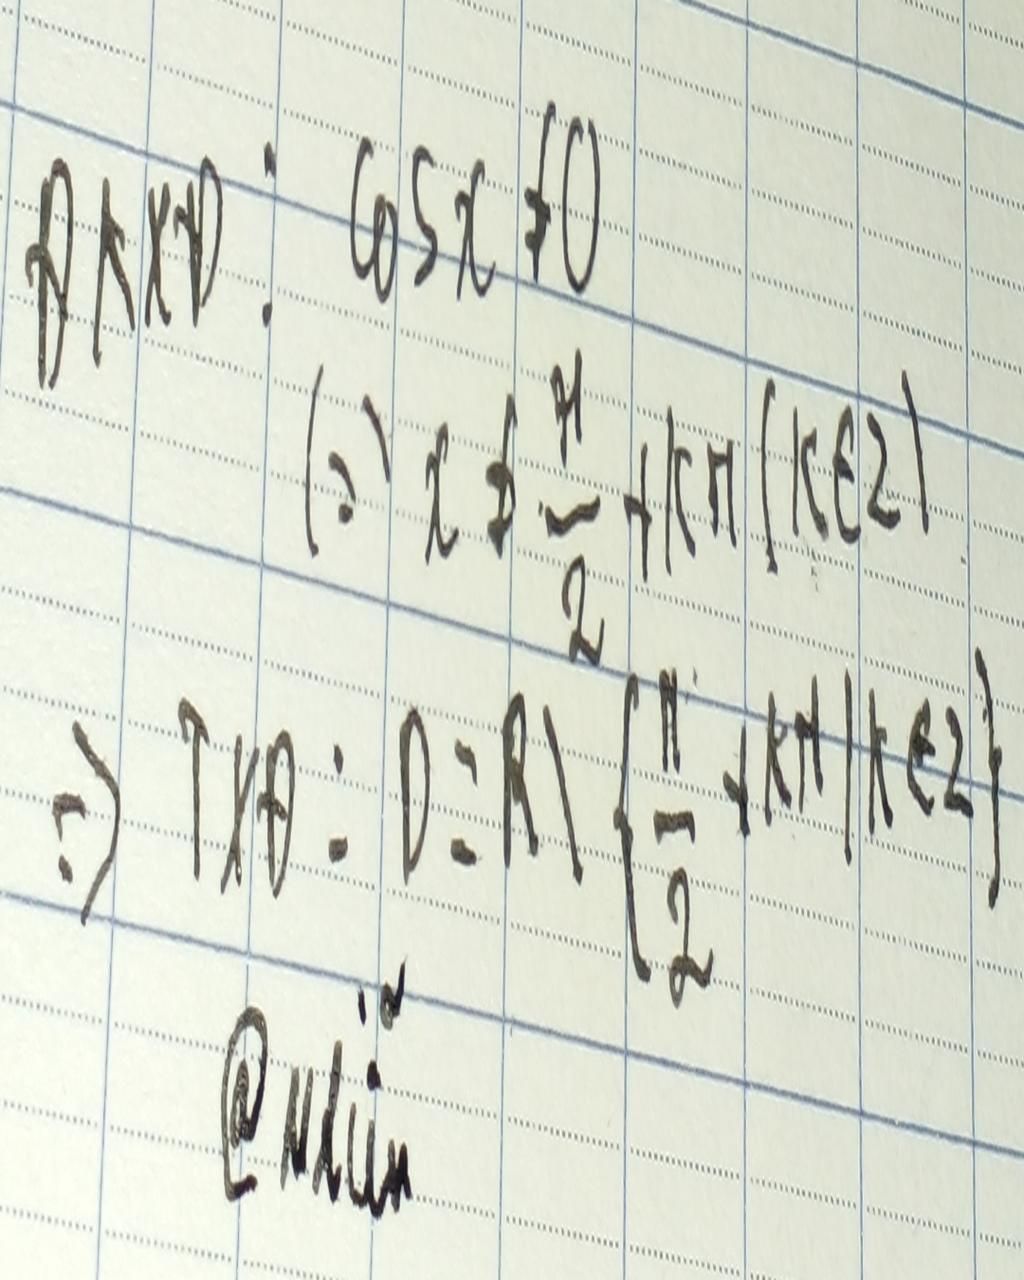 ĐKXĐ: cosx ≠ 0
(=) x ≠ π/2 + kπ (k∈Z)
=) TXĐ: D = R \ {π/2 + kπ | k∈Z}